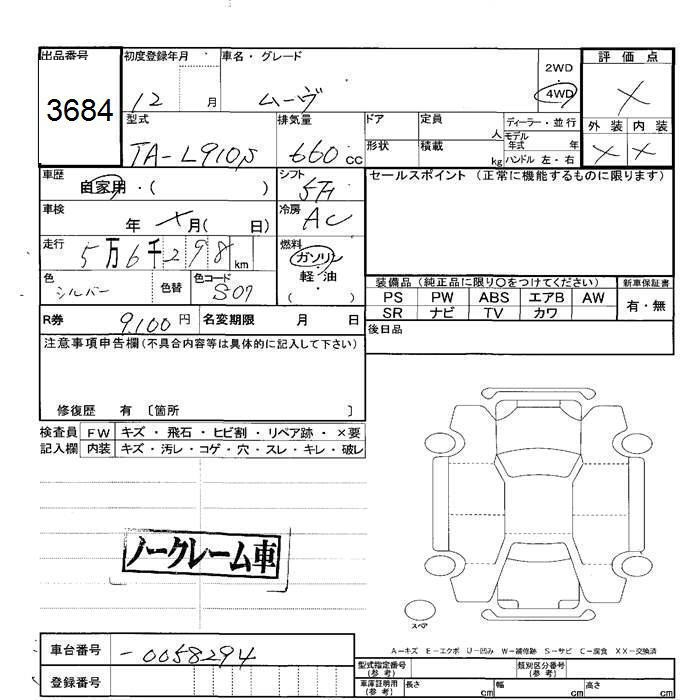 出品番号 初度登録年月 車名・グレード 2WD 評価点
3684 12 月 ムーヴ 4WD ×
型式 排気量 ドア 定員 人 ディーラー・並行 外装 内装
TA-L910S 660 cc 形状 積載 kg モデル年式 年 × ×
ハンドル 左・右
車歴 自家用・( ) シフト 5F セールスポイント (正常に機能するものに限ります)
車検 年 × 月( 日) 冷房 AC
走行 5万6千298 km 燃料 ガソリン
軽・油
( )
色 シルバー 色替 色コード S07
装備品 (純正品に限り○をつけてください) 新車保証書
PS PW ABS エアB AW 有・無
SR ナビ TV カワ
R券 9,100円 名変期限 月 日 後日品
注意事項申告欄(不具合内容等は具体的に記入して下さい)
修復歴 有 〔箇所 〕
検査員 FW キズ・飛石・ヒビ割・リペア跡・×要
記入欄 内装 キズ・汚レ・コゲ・穴・スレ・キレ・破レ
ノークレーム車
スペア
A-キズ E-エクボ U-凹み W-補修跡 S-サビ C-腐食 XX-交換済
車台番号 -0058294
登録番号
型式指定番号(参考) 類別区分番号(参考)
車庫証明用(参考) 長さ cm 幅 cm 高さ cm